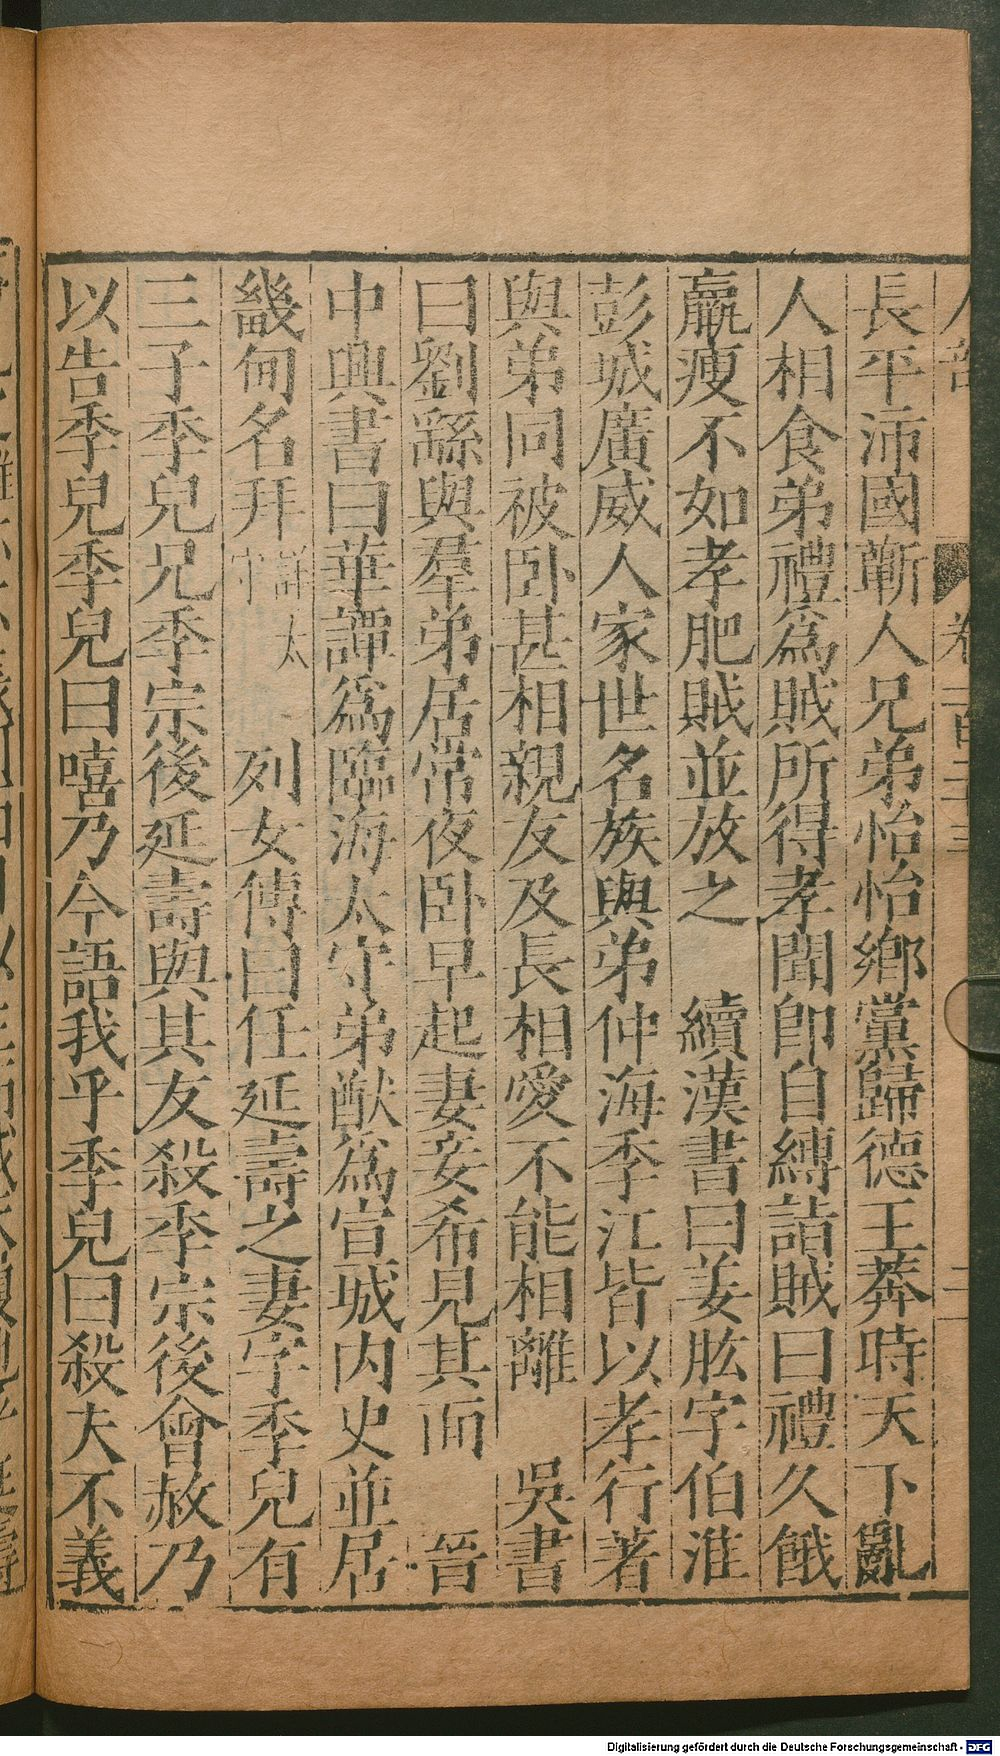 長平沛國蘄人兄弟怡怡鄉黨歸德王莽時天下亂
人相食弟禮爲賊所得孝聞卽自縛詣賊曰禮久餓
羸瘦不如孝肥賊並放之　續漢書曰姜肱字伯淮
彭城廣威人家世名族與弟仲海季江皆以孝行著
與弟同被卧甚相親友及長相愛不能相離　吳書
曰劉繇與羣弟居常夜卧早起妻妾希見其面　晉
中興書曰華譚爲臨海太守弟猷爲宣城內史並居
畿甸名拜詳太守　列女傳曰任延壽之妻字季兒有
三子季兒兄季宗後延壽與其友殺季宗後會赦乃
以告季兒季兒曰嘻乃今語我乎季兒曰殺夫不義
卷二百二十三
二
Digitalisierung gefördert durch die Deutsche Forschungsgemeinschaft - DFG